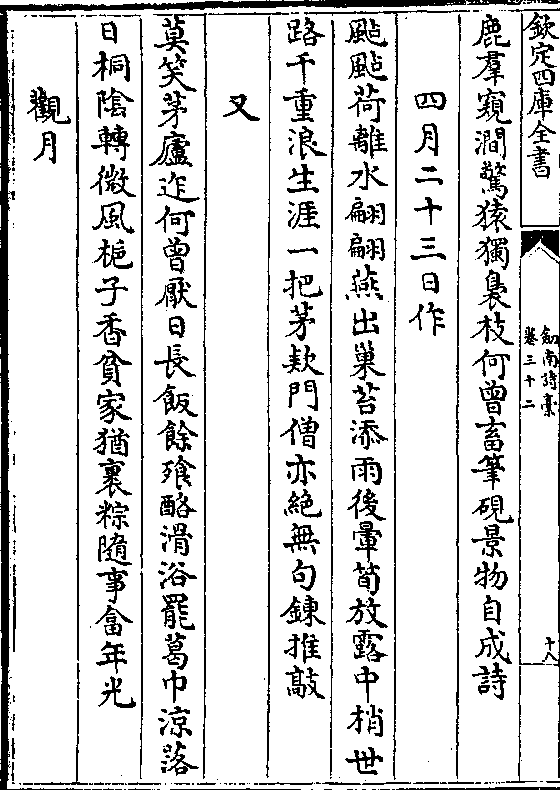 欽定四庫全書
劍南詩稾
卷三十二
十八
鹿羣窺澗驚猿獨裊枝何曾畜筆硯景物自成詩
四月二十三日作
颭颭荷離水翩翩燕出巢苔添雨後暈筍放露中梢世
路千重浪生涯一把茅欵門僧亦絶無句鍊推敲
又
莫笑茅廬迮何曾厭日長飯餘飱酪滑浴罷葛巾涼落
日桐陰轉微風梔子香貧家猶裹粽隨事畣年光
觀月